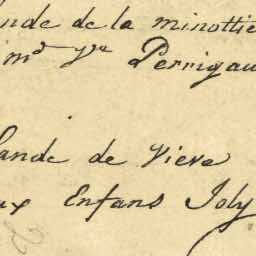 ande de la minottie
md Perrigau
Lande de Vieve
ux Enfans Joly